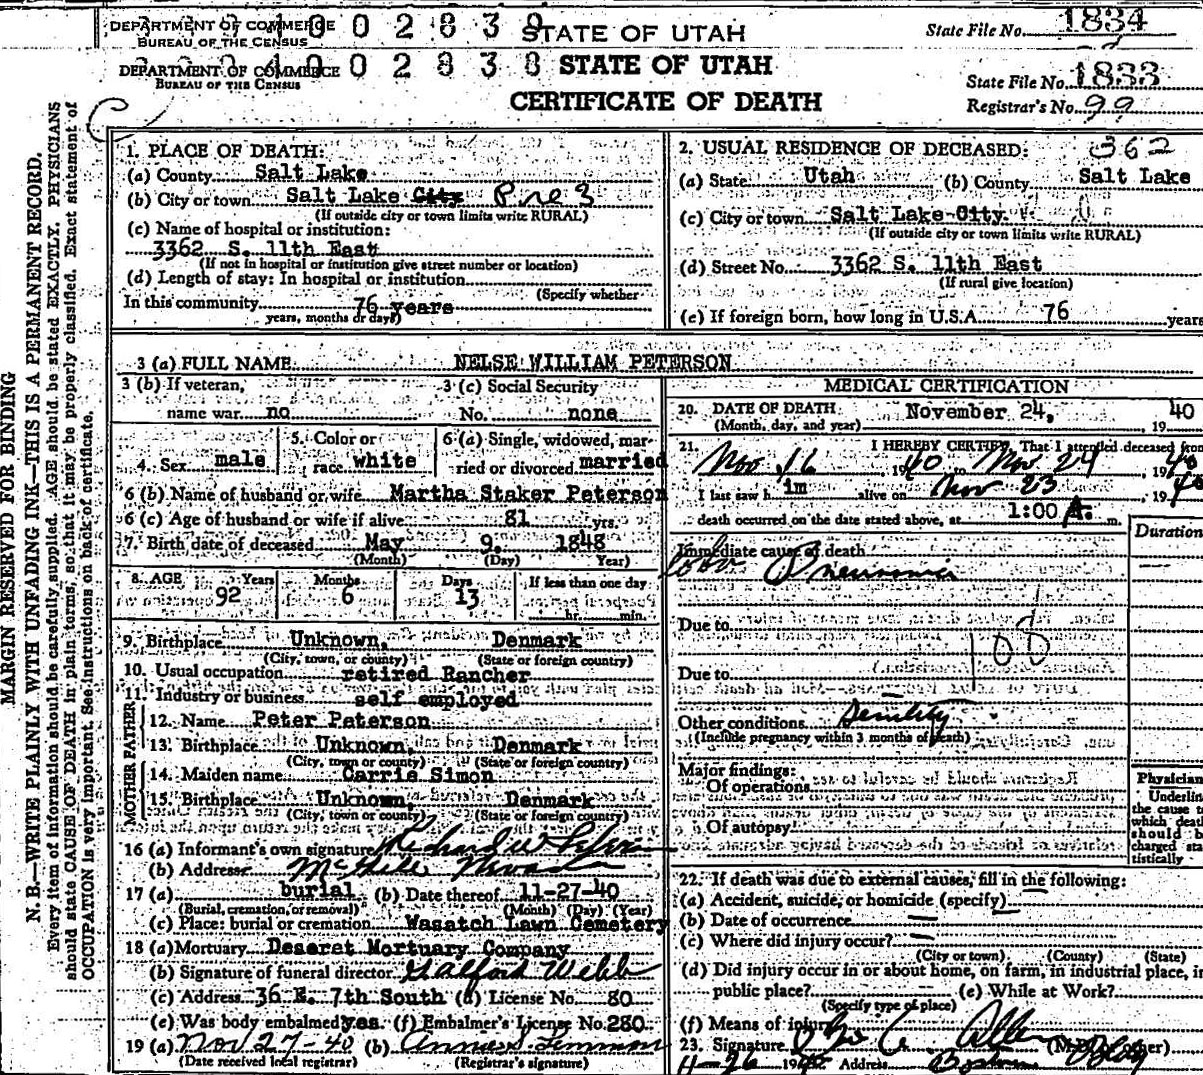 DEPARTMENT OF COMMERCE
BUREAU OF THE CENSUS
0 0 2 8 3 9
STATE OF UTAH
State File No. 1834
DEPARTMENT OF COMMERCE
BUREAU OF THE CENSUS
0 0 2 8 3 8
STATE OF UTAH
CERTIFICATE OF DEATH
State File No. 1833
Registrar's No. 99
MARGIN RESERVED FOR BINDING
N. B.—WRITE PLAINLY WITH UNFADING INK—THIS IS A PERMANENT RECORD.
Every item of information should be carefully supplied. AGE should be stated EXACTLY. PHYSICIANS
should state CAUSE OF DEATH in plain terms, so that it may be properly classified. Exact statement of
OCCUPATION is very important. See instructions on back of certificate.
1. PLACE OF DEATH:
(a) County Salt Lake
(b) City or town Salt Lake City Pre 3
(If outside city or town limits write RURAL)
(c) Name of hospital or institution:
3362 S. 11th East
(If not in hospital or institution give street number or location)
(d) Length of stay: In hospital or institution
(Specify whether
In this community 76 years
years, months or days)
2. USUAL RESIDENCE OF DECEASED: 362
(a) State Utah (b) County Salt Lake
(c) City or town Salt Lake City
(If outside city or town limits write RURAL)
(d) Street No. 3362 S. 11th East
(If rural give location)
(e) If foreign born, how long in U.S.A. 76 years
3 (a) FULL NAME NELSE WILLIAM PETERSON
3 (b) If veteran,
name war no
3 (c) Social Security
No. none
4. Sex male
5. Color or
race white
6 (a) Single, widowed, mar-
ried or divorced married
6 (b) Name of husband or wife Martha Staker Peterson
6 (c) Age of husband or wife if alive 81 yrs.
7. Birth date of deceased May 9, 1848
(Month) (Day) Year)
8. AGE Years Months Days If less than one day
92 6 13 hr. min.
9. Birthplace Unknown, Denmark
(City, town, or county) (State or foreign country)
10. Usual occupation retired Rancher
11. Industry or business self employed
FATHER
12. Name Peter Peterson
13. Birthplace Unknown, Denmark
(City, town or county) (State or foreign country)
MOTHER
14. Maiden name Carrie Simon
15. Birthplace Unknown, Denmark
(City, town or county) (State or foreign country)
16 (a) Informant's own signature Richard W Peterson
(b) Address McGill Nevada
17 (a) burial (b) Date thereof 11-27-40
(Burial, cremation, or removal) (Month) (Day) (Year)
(c) Place: burial or cremation Wasatch Lawn Cemetery
18 (a) Mortuary Deseret Mortuary Company
(b) Signature of funeral director Webb
(c) Address 36 E. 7th South (d) License No. 80
(e) Was body embalmed yes. (f) Embalmer's License No. 280
19 (a) Nov 27-40 (b) Annie S.
(Date received local registrar) (Registrar's signature)
MEDICAL CERTIFICATION
20. DATE OF DEATH November 24, 1940
(Month, day, and year)
21. I HEREBY CERTIFY, That I attended deceased from
Nov 16 1940 to Nov 24 1940
I last saw him alive on Nov 23 1940
death occurred on the date stated above, at 1:00 A. m.
Duration
Immediate cause of death
Lobar Pneumonia
Due to
108
Due to
Other conditions Senility
(Include pregnancy within 3 months of death)
Major findings:
Of operations
Of autopsy
Physician
Underline
the cause to
which death
should be
charged sta-
tistically
22. If death was due to external causes, fill in the following:
(a) Accident, suicide, or homicide (specify)
(b) Date of occurrence
(c) Where did injury occur?
(City or town) (County) (State)
(d) Did injury occur in or about home, on farm, in industrial place, in
public place? (e) While at Work?
(Specify type of place)
(f) Means of injury
23. Signature Allen (M.D. or other)
11-26 1940 Address Boston Bldg